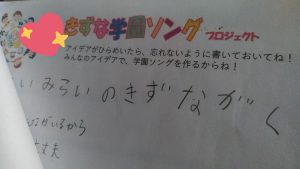 きずな学園ソング プロジェクト
アイデアがひらめいたら、忘れないように書いておいてね！
みんなのアイデアで、学園ソングを作るからね！
いみらいのきずながく
がいるから
丈夫